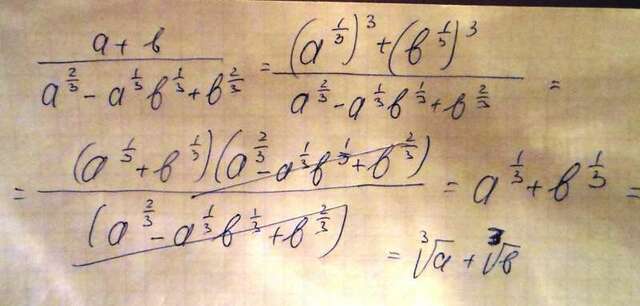 (a + b)/(a^(2/3) - a^(1/3) b^(1/3) + b^(2/3)) = ((a^(1/3))^3 + (b^(1/3))^3)/(a^(2/3) - a^(1/3) b^(1/3) + b^(2/3)) =
= ((a^(1/3) + b^(1/3))(a^(2/3) - a^(1/3) b^(1/3) + b^(2/3)))/((a^(2/3) - a^(1/3) b^(1/3) + b^(2/3))) = a^(1/3) + b^(1/3) =
= ∛a + ∛b